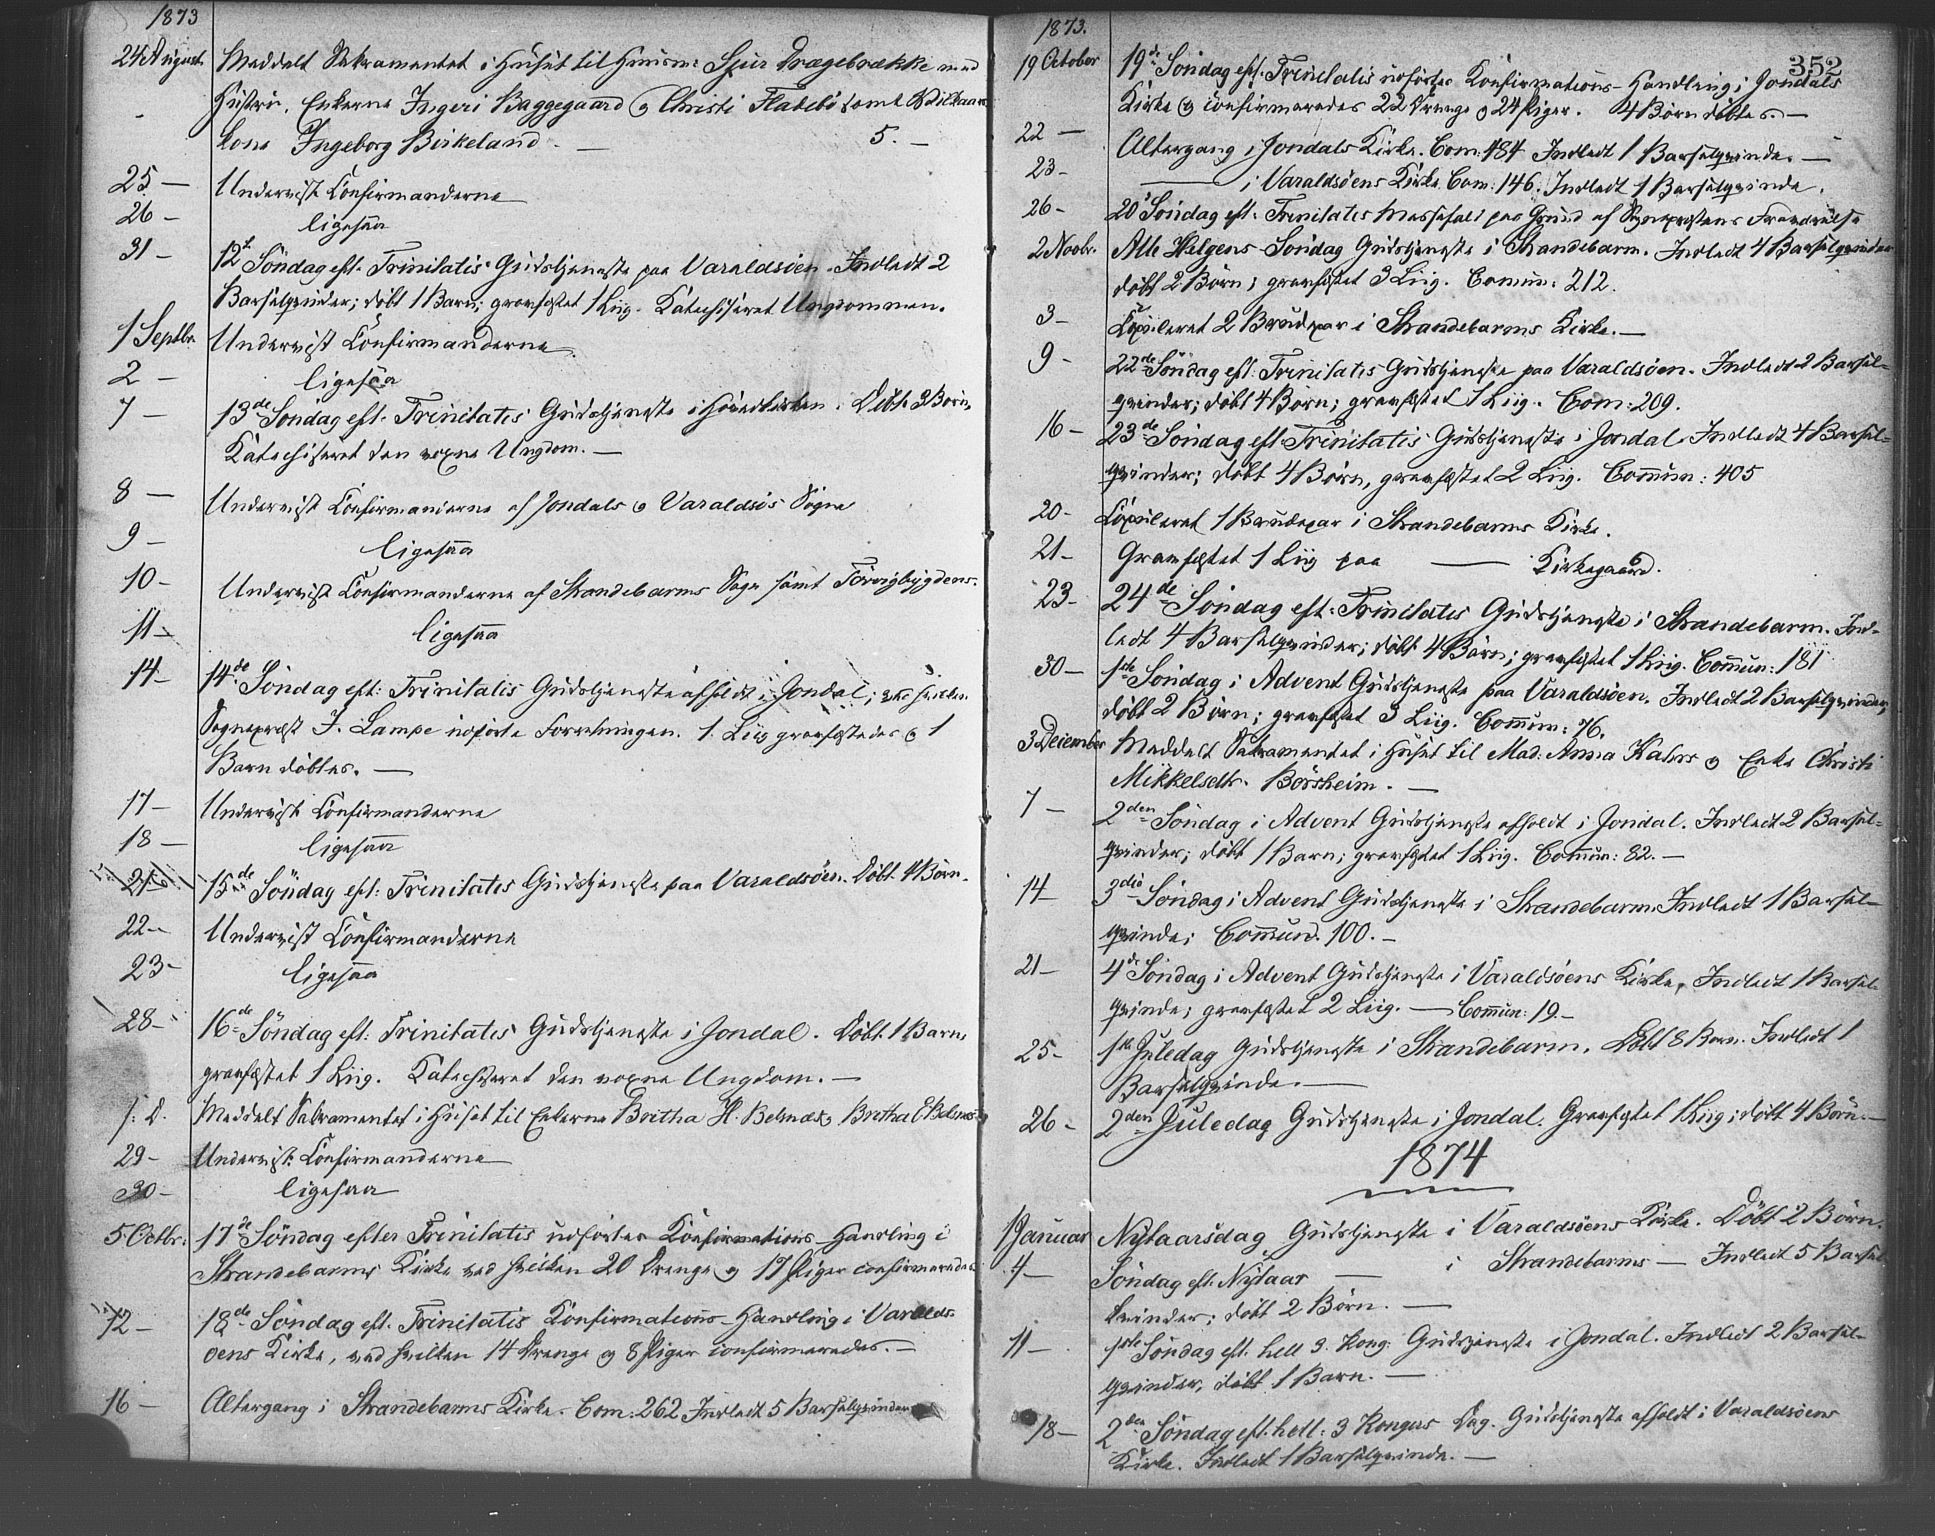 1873
24 August. Meddelt Sakramentet i Huset til Huusm: Sjur Drægebrække med
Hustru, Enkerne Ingeri Baggegaard og Christi Flatebø samt Vilkaars
kone Ingeborg Birkeland. — 5. —
25 — Underviist Confirmanderne
26 — ligesaa
31 — 12te Søndag eft. Trinitatis Gudstjeneste paa Varaldsøen. Indledt 2
Barselqvinder; døbt 1 Barn; gravfæstet 1 Liig. Katechiseret Ungdommen.
1 Septbr. Underviist Confirmanderne
2 — ligesaa
7 — 13de Søndag eft. Trinitatis Gudstjeneste i Hovedkirken. Døbt 3 Børn,
Katechiseret den voxne Ungdom. —
8 — Underviist Confirmanderne af Jondals og Varaldsøs Sogne
9 — ligesaa
10 — Underviist Confirmanderne af Strandebarms Sogn samt Torvigbygdens.
11 — ligesaa
14 — 14de Søndag eft: Trinitatis Gudstjeneste afholdt i Jondal;
Sogneprest J. Lampe udførte Forretningen. 1 Liig gravfæstedes og 1
Barn døbtes. —
17 — Underviist Confirmanderne
18 — ligesaa
21 — 15de Søndag eft: Trinitatis Gudstjeneste paa Varaldsøen. Døbt 4 Børn.
22 — Underviist Confirmanderne
23 — ligesaa
28 — 16de Søndag eft: Trinitatis Gudstjeneste i Jondal. Døbt 1 Barn,
gravfæstet 1 Liig. Katechiseret den voxne Ungdom. —
s: D. Meddelt Sakramentet i Huset til Enkerne Britha H. Belsnæs, Britha E. Belsnæs
29 — Underviist Confirmanderne
30 — ligesaa
5 Octbr. 17de Søndag efter Trinitatis udførtes Confirmations-Handling i
Strandebarms Kirke ved hvilken 20 Drenge og 17 Piger confirmeredes
12 — 18de Søndag eft. Trinitatis Confirmations-Handling i Varalds-
øens Kirke, ved hvilken 14 Drenge og 8 Piger confirmeredes. —
16 — Altergang i Strandebarms Kirke. Com: 262 Indledt 5 Barselqvinder
1873.
352
19 October 19de Søndag eft. Trinitatis udførtes Confirmations-Handling i Jondals
Kirke og confirmeredes 22 Drenge og 24 Piger. 4 Børn døbtes. —
22 — Altergang i Jondals Kirke. Com: 484 Indledt 1 Barselqvinde. —
23 — — i Varaldsøens Kirke. Com: 146. Indledt 1 Barselqvinde.
26 — 20de Søndag eft. Trinitatis Messefald paa Grund af Sogneprestens Fraværelse
2 Novbr. Alle Helgens Søndag Gudstjeneste i Strandebarm. Indledt 4 Barselqvinder
døbt 2 Børn; gravfæstet 3 Liig. Commun: 212.
3 — Copuleret 2 Brudepar i Strandebarms Kirke. —
9 — 22de Søndag eft. Trinitatis Gudstjeneste paa Varaldsøen. Indledt 2 Barsel-
qvinder; døbt 4 Børn; gravfæstet 1 Liig. Com: 209.
16 — 23de Søndag eft. Trinitatis Gudstjeneste i Jondal. Indledt 4 Barsel-
qvinder; døbt 4 Børn, gravfæstet 2 Liig. Commun: 405
20 — Copuleret 1 Brudepar i Strandebarms Kirke.
21 — Gravfæstet 1 Liig paa — Kirkegaard.
23 — 24de Søndag eft. Trinitatis Gudstjeneste i Strandebarm. Ind-
ledt 4 Barselqvinder; døbt 4 Børn; gravfæstet 1 Liig. Commun: 181
30 — 1ste Søndag i Advent Gudstjeneste paa Varaldsøen. Indledt 2 Barselqvinder,
døbt 2 Børn; gravfæstet 3 Liig. Commun: 76.
3 December Meddelt Sakramentet i Huset til Mad. Anna Kahrs og Enke Christi
Mikkelsdtr. Børsheim. —
7 — 2den Søndag i Advent Gudstjeneste afholdt i Jondal. Indledt 2 Barsel-
qvinder; døbt 1 Barn; gravfæstet 1 Liig. Commun: 82. —
14 — 3die Søndag i Advent Gudstjeneste i Strandebarm. Indledt 1 Barsel-
qvinde; Commun. 100. —
21 — 4de Søndag i Advent Gudstjeneste i Varaldsøens Kirke, Indledt 1 Barsel-
qvinde; gravfæstet 2 Liig. — Commun: 19. —
25 — 1ste Juledag Gudstjeneste i Strandebarm. Døbt 8 Børn. Indledt 1
Barselqvinde. —
26 — 2den Juledag Gudstjeneste i Jondal. Gravfæstet 1 Liig; døbt 4 Børn. —
1874
1 Januar Nytaarsdag Gudstjeneste i Varaldsøens Kirke. Døbt 2 Børn.
4 — Søndag eft. Nytaar — i Strandebarms — Indledt 5 Barsel
kvinder; døbt 2 Børn. —
11 — 1ste Søndag eft. hell. 3 Kong. Gudstjeneste i Jondal. Indledt 2 Barsel-
qvinder, døbt 1 Barn. —
18 — 2den Søndag eft. hell: 3 Kongers Dag. Gudstjeneste afholdt i Varaldsøens
Kirke. Indledt 1 Barselqvinde. —